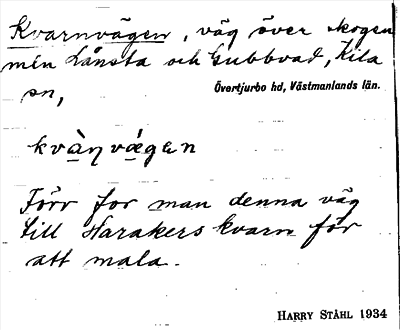 Kvarnvägen, väg över skogen
mln Lånsta och Gubbvad, Kila
sn,
Övertjurbo hd, Västmanlands län.
kvàṇvǽgen
Förr for man denna väg
till Harakers kvarn för
att mala.
HARRY STÅHL 1934